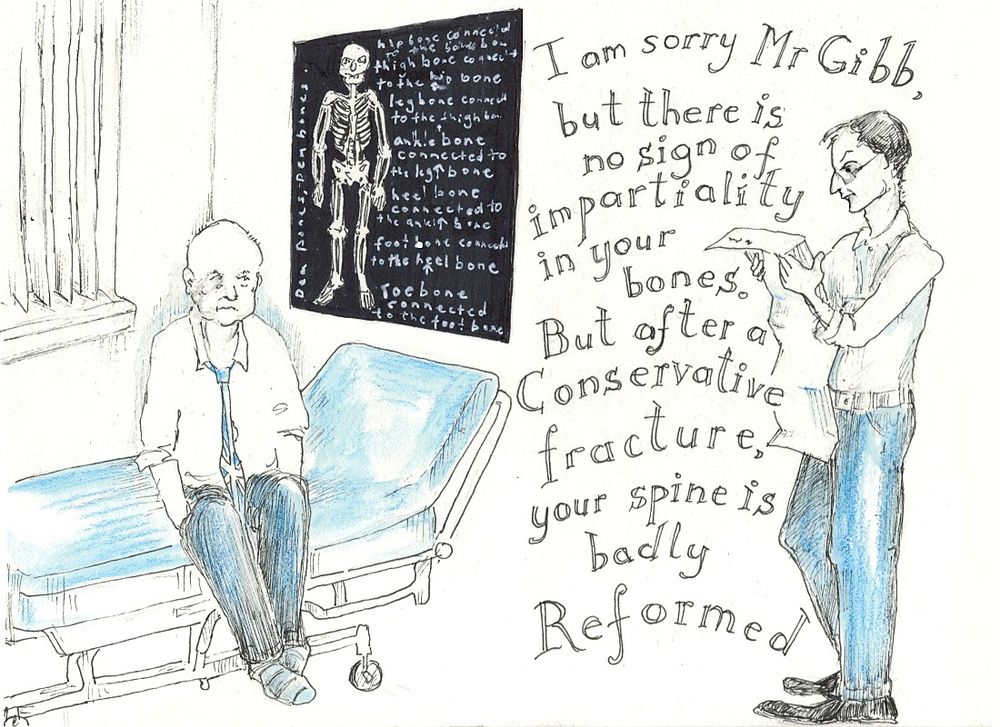 Dem Bones, Dem bones.
hip bone connected
to the back bone
thigh bone connect
to the hip bone
leg bone connect
to the thigh bo
ankle bone
connected to
the leg bone
heel bone
connected to
the ankle bone
foot bone connected
to the heel bone
Toe bone
connected
to the foot bone
I am sorry Mr Gibb,
but there is
no sign of
impartiality
in your
bones.
But after a
Conservative
fracture,
your spine is
badly
Reformed